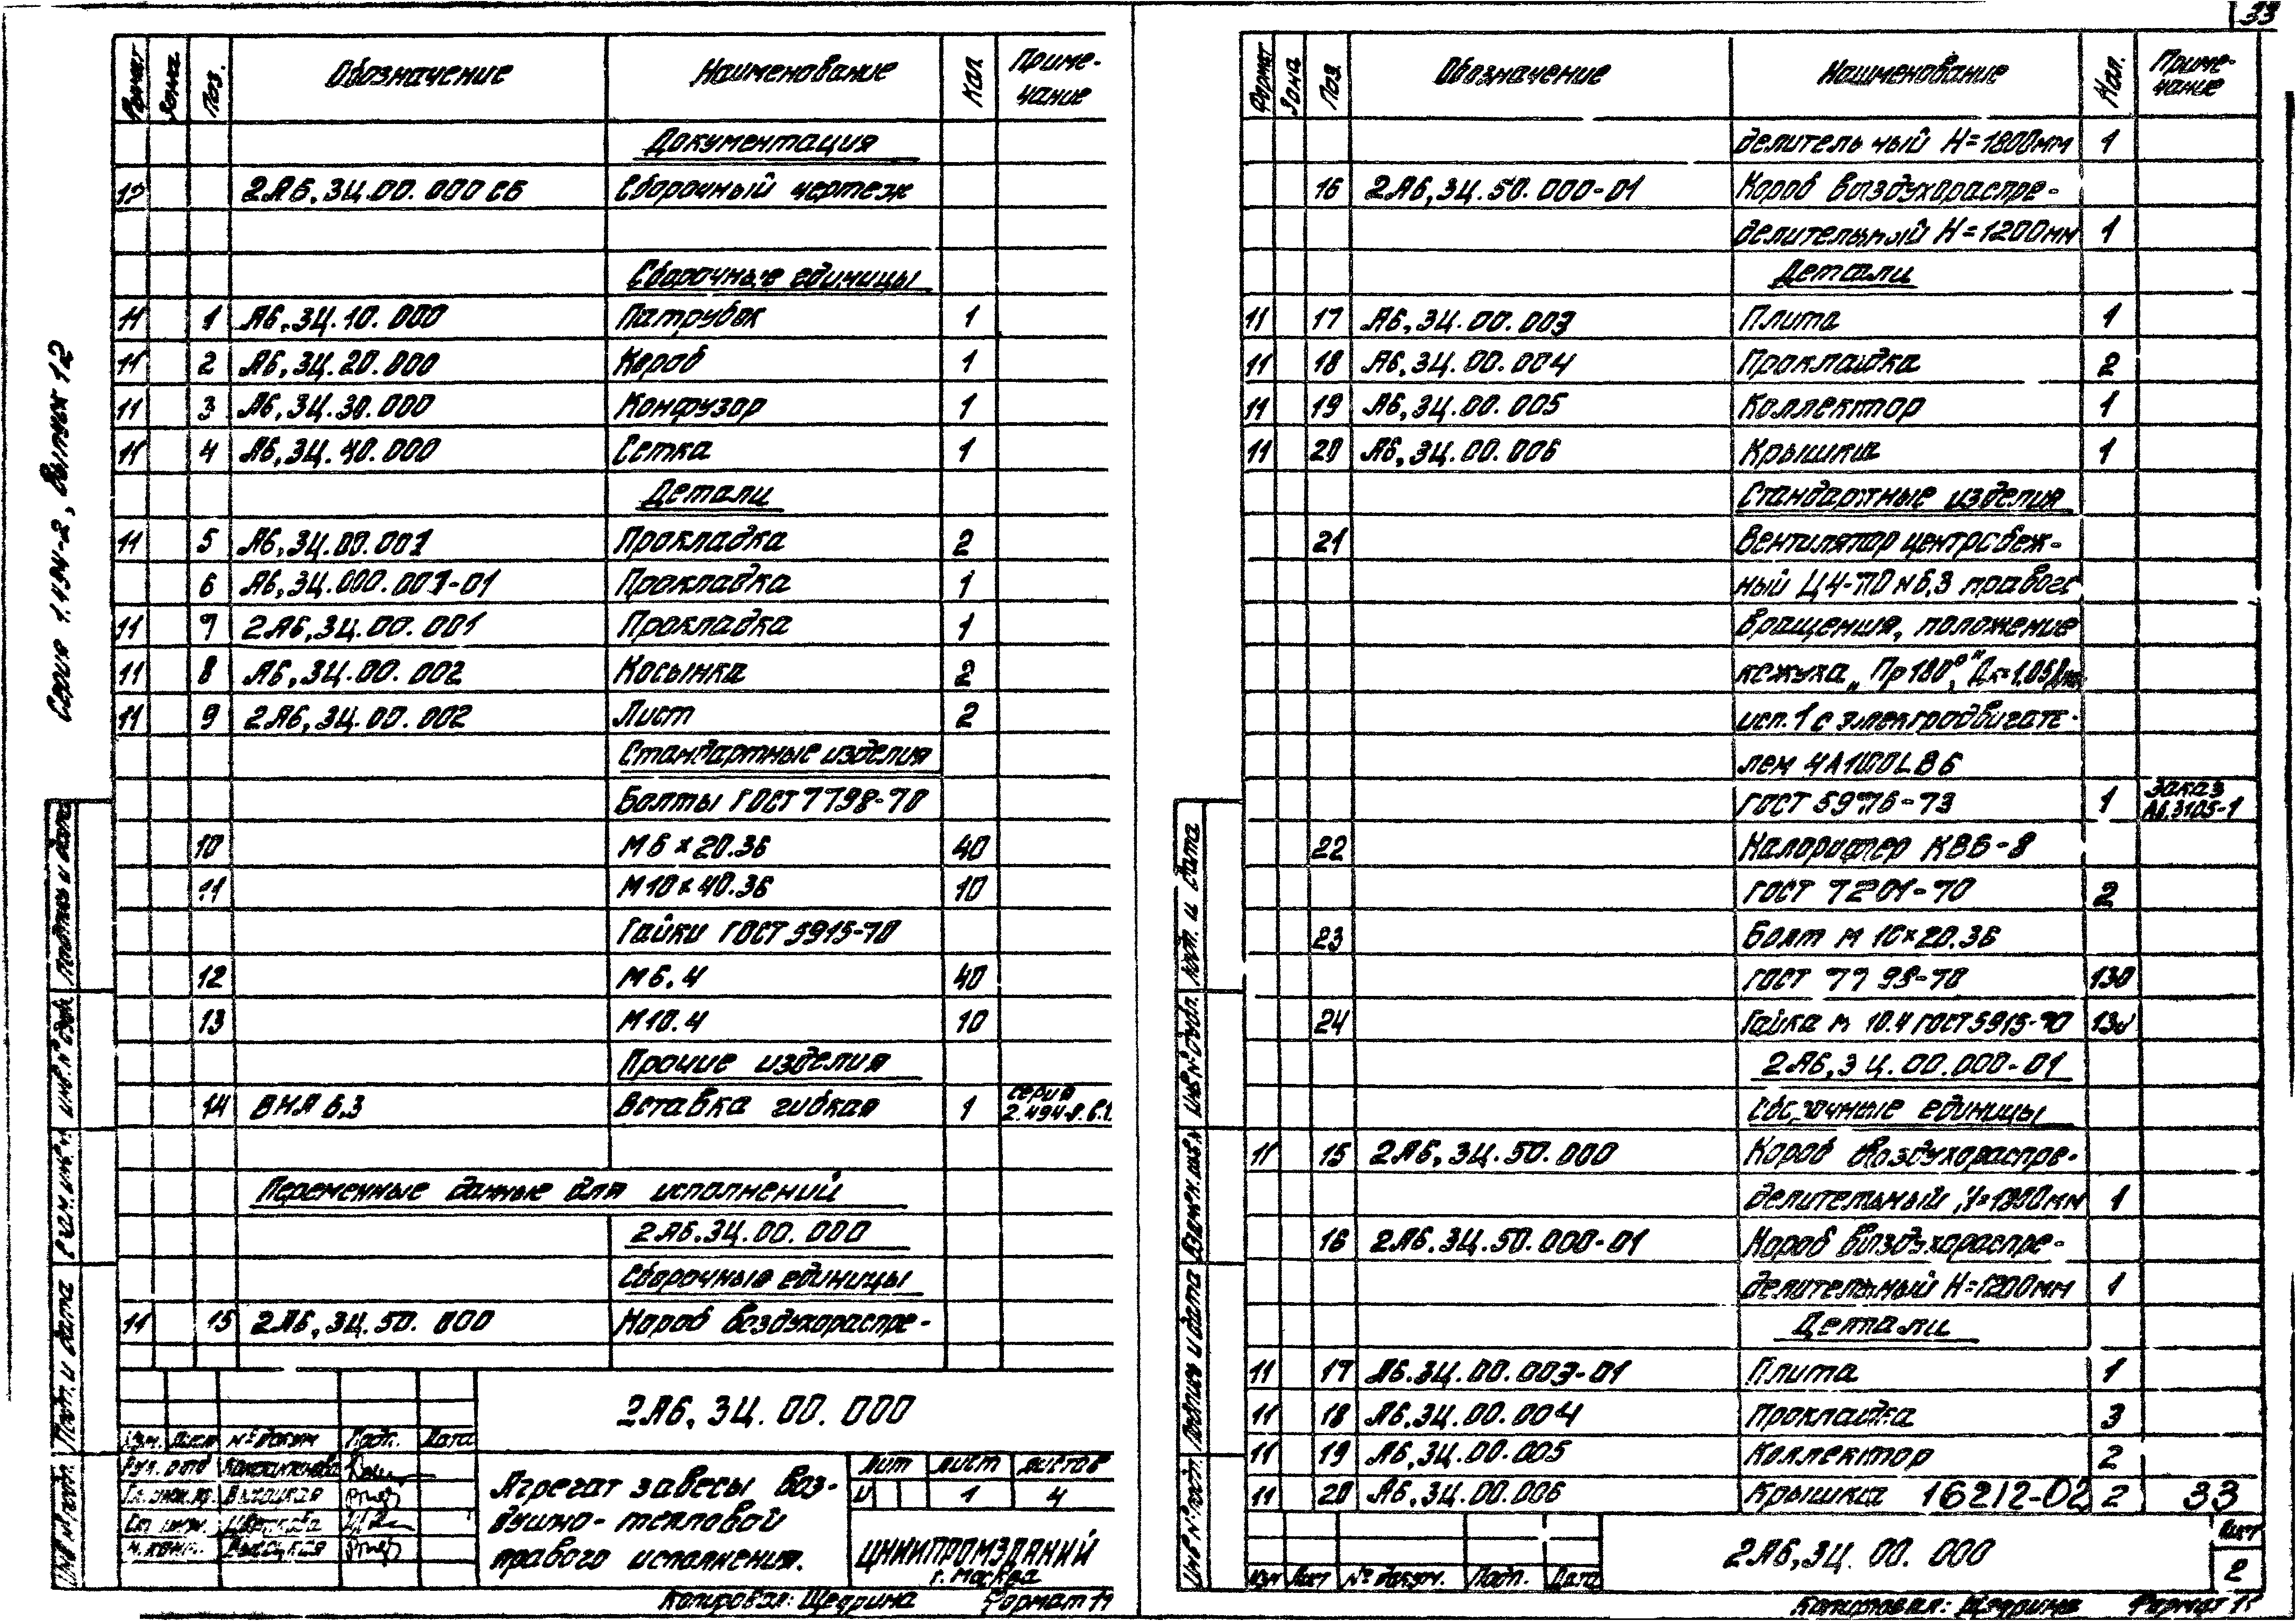 33
Серия 1.494-2, Выпуск 12
Формат Зона Поз. Обозначение Наименование Кол. Приме-
чание
Документация
12 2А6,3Ц.00.000 СБ Сборочный чертеж
Сборочные единицы
11 1 А6,3Ц.10.000 Патрубок 1
11 2 А6,3Ц.20.000 Короб 1
11 3 А6,3Ц.30.000 Конфузор 1
11 4 А6,3Ц.40.000 Сетка 1
Детали
11 5 А6,3Ц.00.001 Прокладка 2
6 А6,3Ц.000.001-01 Прокладка 1
11 7 2А6,3Ц.00.001 Прокладка 1
11 8 А6,3Ц.00.002 Косынка 2
11 9 2А6,3Ц.00.002 Лист 2
Стандартные изделия
Болты ГОСТ 7798-70
10 М6×20.36 40
11 М10×40.36 10
Гайки ГОСТ 5915-70
12 М6.4 40
13 М10.4 10
Прочие изделия
14 ВНА 6.3 Вставка гибкая 1 серия
2.494-8.
Переменные данные для исполнений
2А6.3Ц.00.000
Сборочные единицы
11 15 2А6,3Ц.50.000 Короб воздухораспре-
2А6,3Ц.00.000
Изм. Лист № докум Подп. Дата
Рук. отд
Гл. инж. пр. Высоцкая
Ст. инж. Цветкова
Н. конт. Высоцкая
Агрегат завесы воз-
душно-тепловой
правого исполнения.
Лит Лист Листов
И 1 4
ЦНИИПРОМЗДАНИЙ
г. Москва
Копировал: Щедрина Формат 11
Подпись и дата
Инв. № дубл.
Взам. инв. №
Подп. и дата
Инв. № подл.
Формат Зона Поз. Обозначение Наименование Кол. Приме-
чание
делительный Н=1800мм 1
16 2А6,3Ц.50.000-01 Короб воздухораспре-
делительный Н=1200мм 1
Детали
11 17 А6,3Ц.00.003 Плита 1
11 18 А6,3Ц.00.004 Прокладка 2
11 19 А6,3Ц.00.005 Коллектор 1
11 20 А6,3Ц.00.006 Крышка 1
Стандартные изделия
21 Вентилятор центробеж-
ный Ц4-70 №6,3 правого
вращения, положение
кожуха „Пр180°", Дк=1.05Дном
исп.1 с электродвигате-
лем 4А100LB6
ГОСТ 5976-73 1 Заказ
А6.3105-1
22 Калорифер КВБ-8
ГОСТ 7201-70 2
23 Болт М 10×20.36
ГОСТ 7798-70 130
24 Гайка М 10.4 ГОСТ 5915-70 130
2А6,3Ц.00.000-01
Сборочные единицы
11 15 2А6,3Ц.50.000 Короб воздухораспре-
делительный Н=1800мм 1
16 2А6.3Ц.50.000-01 Короб воздухораспре-
делительный Н=1200мм 1
Детали
11 17 А6.3Ц.00.003-01 Плита 1
11 18 А6,3Ц.00.004 Прокладка 3
11 19 А6,3Ц.00.005 Коллектор 2
11 20 А6,3Ц.00.006 Крышка 2
16212-02 33
2А6,3Ц.00.000
Лист
2
Изм Лист № докум. Подп. Дата
Копировал: Щедрина Формат 11
Подп. и дата
Инв № дубл.
Взамен инв. №
Подпись и дата
Инв № подл.